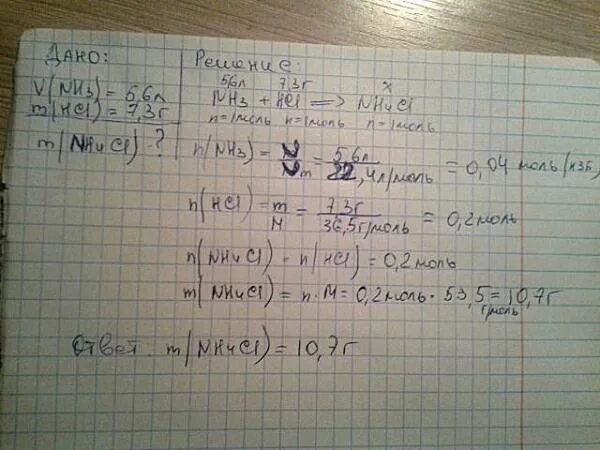 Дано:
V(NH3) = 5,6л
m(HCl) = 7,3г
m(NH4Cl) - ?
Решение:
5,6л 7,3г x
NH3 + HCl => NH4Cl
n=1моль n=1моль n=1моль
n(NH3) = V/Vm = 5,6л/22,4л/моль = 0,04 моль (изб)
n(HCl) = m/M = 7,3г/36,5г/моль = 0,2моль
n(NH4Cl) = n(HCl) = 0,2моль
m(NH4Cl) = n·M = 0,2моль · 53,5 г/моль = 10,7г
Ответ: m(NH4Cl) = 10,7г